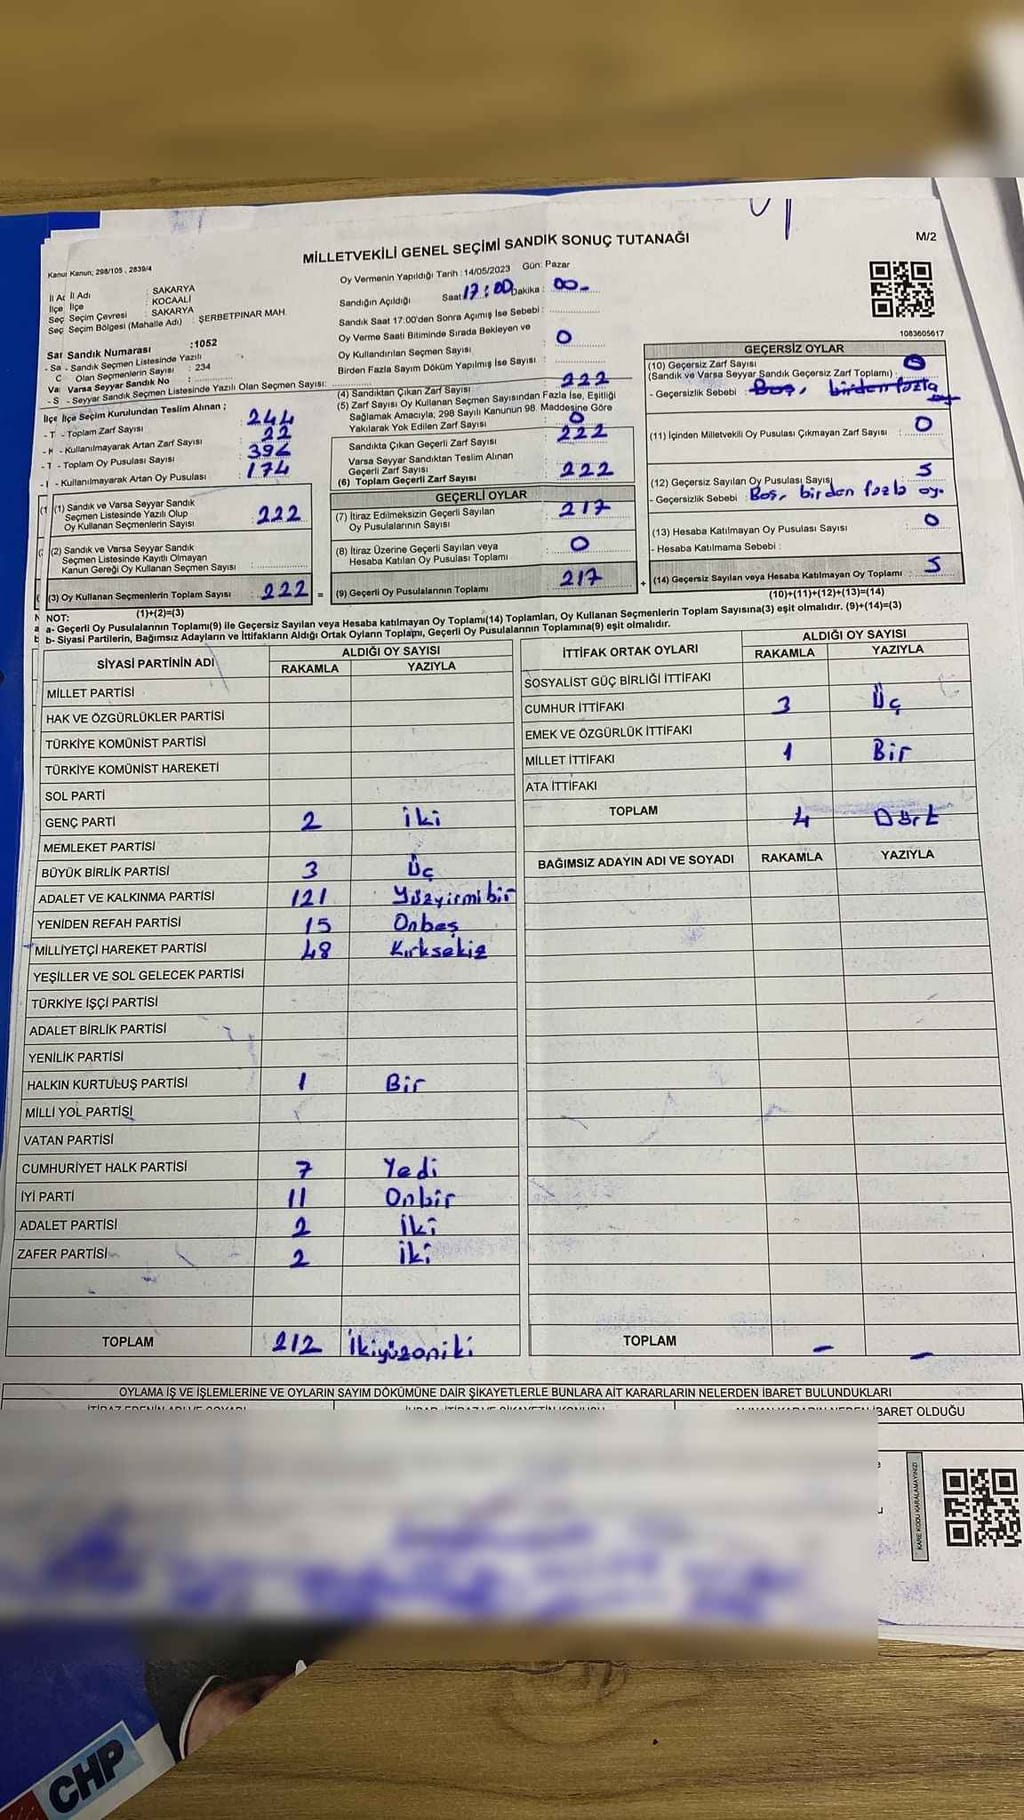 MİLLETVEKİLİ GENEL SEÇİMİ SANDIK SONUÇ TUTANAĞI
M/2
Kanun; 298/105 , 2839/4
İl Adı : SAKARYA
İlçe : KOCAALİ
Seçim Çevresi : SAKARYA
Seçim Bölgesi (Mahalle Adı) : ŞERBETPINAR MAH.
Sandık Numarası :1052
- Sandık Seçmen Listesinde Yazılı
Olan Seçmenlerin Sayısı : 234
Varsa Seyyar Sandık No :
- Seyyar Sandık Seçmen Listesinde Yazılı Olan Seçmen Sayısı:
İlçe Seçim Kurulundan Teslim Alınan ;
- Toplam Zarf Sayısı : 244
- Kullanılmayarak Artan Zarf Sayısı : 22
- Toplam Oy Pusulası Sayısı : 396
- Kullanılmayarak Artan Oy Pusulası : 174
(1) Sandık ve Varsa Seyyar Sandık
Seçmen Listesinde Yazılı Olup
Oy Kullanan Seçmenlerin Sayısı : 222
(2) Sandık ve Varsa Seyyar Sandık
Seçmen Listesinde Kayıtlı Olmayan
Kanun Gereği Oy Kullanan Seçmen Sayısı :
(3) Oy Kullanan Seçmenlerin Toplam Sayısı : 222 =
(1)+(2)=(3)
Oy Vermenin Yapıldığı Tarih : 14/05/2023 Gün: Pazar
Sandığın Açıldığı Saat : 17:00 Dakika : 00-
Sandık Saat 17:00'den Sonra Açımış İse Sebebi :
Oy Verme Saati Bitiminde Sırada Bekleyen ve
Oy Kullandırılan Seçmen Sayısı : 0
Birden Fazla Sayım Döküm Yapılmış İse Sayısı :
(4) Sandıktan Çıkan Zarf Sayısı : 222
(5) Zarf Sayısı Oy Kullanan Seçmen Sayısından Fazla İse, Eşitliği
Sağlamak Amacıyla; 298 Sayılı Kanunun 98. Maddesine Göre
Yakılarak Yok Edilen Zarf Sayısı : 0
Sandıkta Çıkan Geçerli Zarf Sayısı : 222
Varsa Seyyar Sandıktan Teslim Alınan
Geçerli Zarf Sayısı
(6) Toplam Geçerli Zarf Sayısı : 222
GEÇERLİ OYLAR
(7) İtiraz Edilmeksizin Geçerli Sayılan
Oy Pusulalarının Sayısı : 217
(8) İtiraz Üzerine Geçerli Sayılan veya
Hesaba Katılan Oy Pusulası Toplamı : 0
(9) Geçerli Oy Pusulalarının Toplamı : 217 +
1083605617
GEÇERSİZ OYLAR
(10) Geçersiz Zarf Sayısı
(Sandık ve Varsa Seyyar Sandık Geçersiz Zarf Toplamı) : 0
- Geçersizlik Sebebi : Boş, birden fazla oy
(11) İçinden Milletvekili Oy Pusulası Çıkmayan Zarf Sayısı : 0
(12) Geçersiz Sayılan Oy Pusulası Sayısı : 5
- Geçersizlik Sebebi : Boş, birden fazla oy.
(13) Hesaba Katılmayan Oy Pusulası Sayısı : 0
- Hesaba Katılmama Sebebi :
(14) Geçersiz Sayılan veya Hesaba Katılmayan Oy Toplamı : 5
(10)+(11)+(12)+(13)=(14)
NOT:
a- Geçerli Oy Pusulalarının Toplamı(9) ile Geçersiz Sayılan veya Hesaba katılmayan Oy Toplamı(14) Toplamları, Oy Kullanan Seçmenlerin Toplam Sayısına(3) eşit olmalıdır. (9)+(14)=(3)
b- Siyasi Partilerin, Bağımsız Adayların ve İttifakların Aldığı Ortak Oyların Toplamı, Geçerli Oy Pusulalarının Toplamına(9) eşit olmalıdır.
SİYASİ PARTİNİN ADI ALDIĞI OY SAYISI
RAKAMLA YAZIYLA
MİLLET PARTİSİ
HAK VE ÖZGÜRLÜKLER PARTİSİ
TÜRKİYE KOMÜNİST PARTİSİ
TÜRKİYE KOMÜNİST HAREKETİ
SOL PARTİ
GENÇ PARTİ 2 iki
MEMLEKET PARTİSİ
BÜYÜK BİRLİK PARTİSİ 3 Üç
ADALET VE KALKINMA PARTİSİ 121 Yüzyirmibir
YENİDEN REFAH PARTİSİ 15 Onbeş
MİLLİYETÇİ HAREKET PARTİSİ 48 Kırksekiz
YEŞİLLER VE SOL GELECEK PARTİSİ
TÜRKİYE İŞÇİ PARTİSİ
ADALET BİRLİK PARTİSİ
YENİLİK PARTİSİ
HALKIN KURTULUŞ PARTİSİ 1 Bir
MİLLİ YOL PARTİSİ
VATAN PARTİSİ
CUMHURİYET HALK PARTİSİ 7 Yedi
İYİ PARTİ 11 Onbir
ADALET PARTİSİ 2 İki
ZAFER PARTİSİ 2 iki
TOPLAM 212 İkiyüzoniki
İTTİFAK ORTAK OYLARI ALDIĞI OY SAYISI
RAKAMLA YAZIYLA
SOSYALİST GÜÇ BİRLİĞİ İTTİFAKI
CUMHUR İTTİFAKI 3 Üç
EMEK VE ÖZGÜRLÜK İTTİFAKI
MİLLET İTTİFAKI 1 Bir
ATA İTTİFAKI
TOPLAM 4 Dört
BAĞIMSIZ ADAYIN ADI VE SOYADI RAKAMLA YAZIYLA
TOPLAM - -
OYLAMA İŞ VE İŞLEMLERİNE VE OYLARIN SAYIM DÖKÜMÜNE DAİR ŞİKAYETLERLE BUNLARA AİT KARARLARIN NELERDEN İBARET BULUNDUKLARI
İBARET OLDUĞU
KARE KODU KARALAMAYINIZ!
CHP